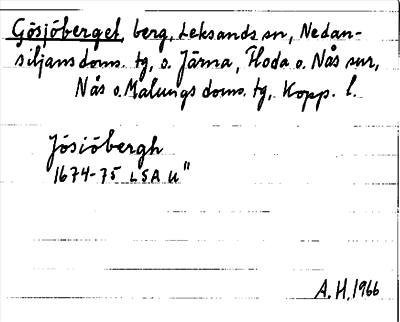 Gösjöberget, berg, Leksands sn, Nedan-
siljans doms. tg, o. Järna, Floda o. Nås snr,
Nås o. Malungs doms. tg, Kopp. l.
Jösiöbergh
1674-75 LSA U"
A.H. 1966